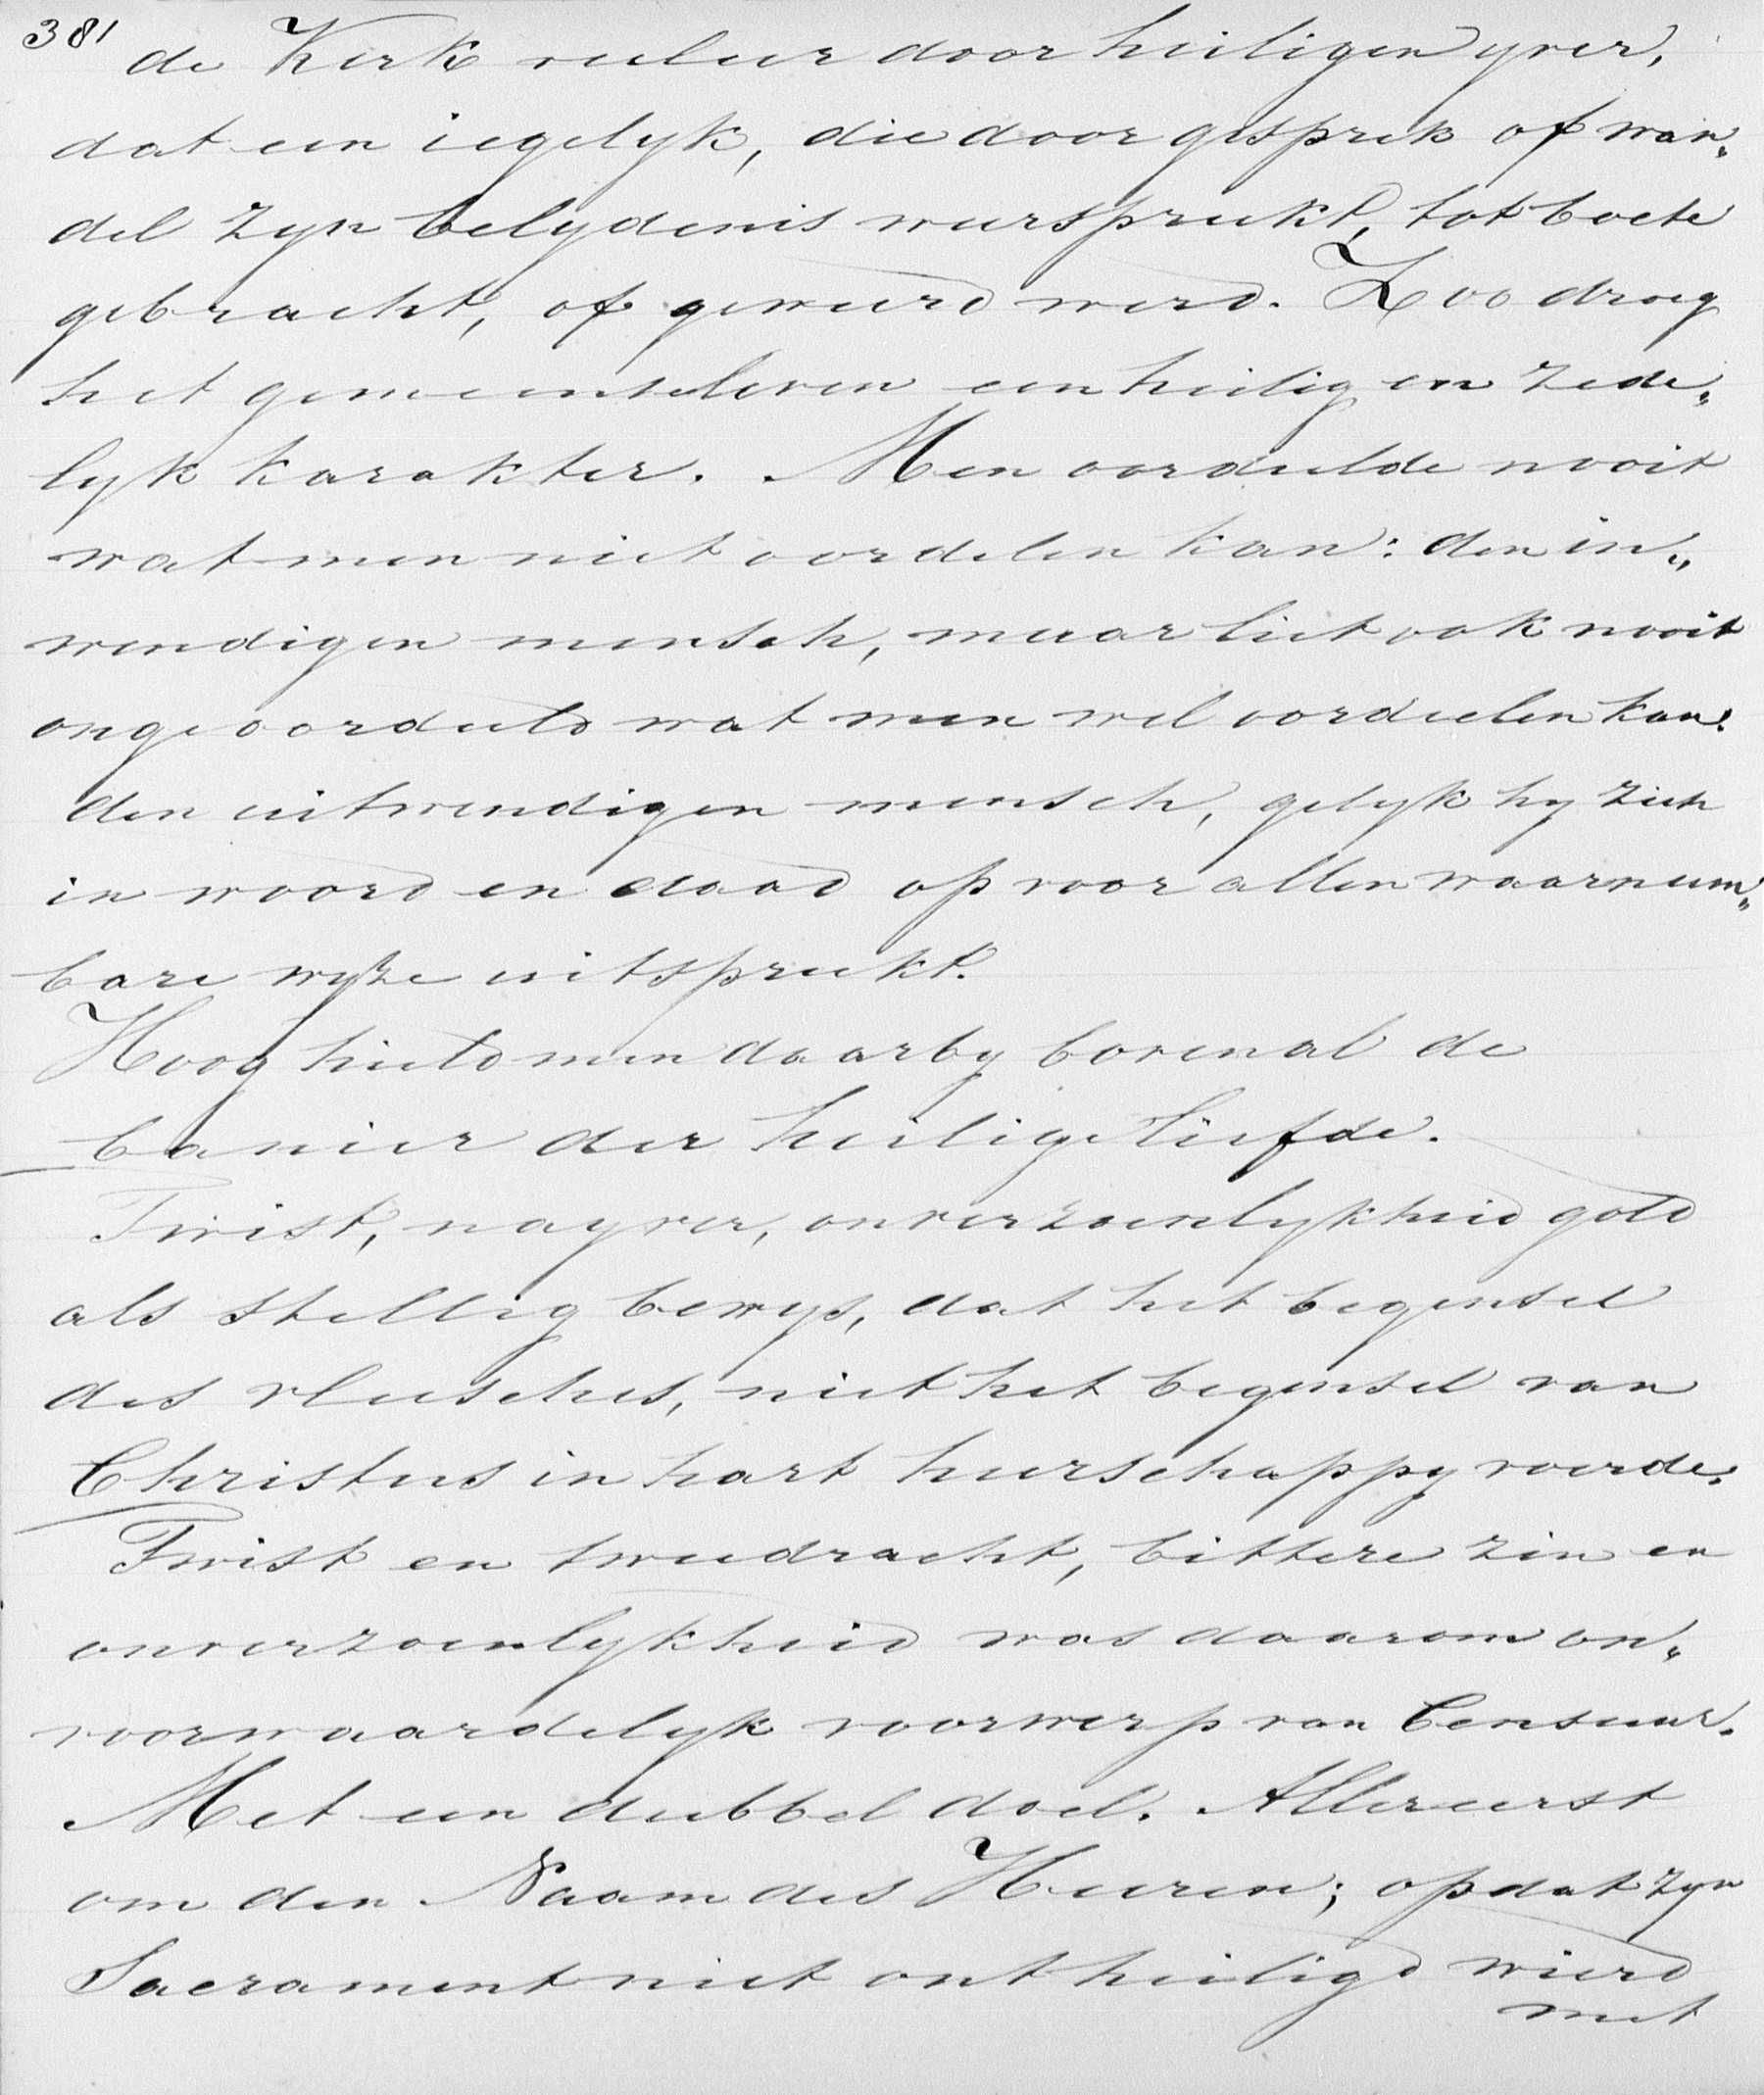 381
de Kerk veeleer door heiligen yver,
dat een iegelyk, die door gesprek of wan„
del zyn belydenis weerspreekt, tot boete
gebracht, of geweerd werd. Zoo droeg
het gemeenteleven een heilig en zede„
lyk karakter. Men oordeelde nooit
wat men niet oordelen kan: den in„
wendigen mensch, maar liet ook nooit
ongeoordeeld wat men wel oordeelen kan:
den uitwendigen mensch, gelyk hy zich
in woord en daad op voor allen waarneem„
bare wyze uitspreekt.
Hoog hield men daarby bovenal de
banier der heilige liefde.
Twist, nayver, onverzoenlykheid gold
als stellig bewys, dat het beginsel
des vleesches, niet het beginsel van
Christus in hart heerschappy voerde.
Twist en tweedracht, bittere zin en
onverzoenlykheid was daarom on„
voorwaardelyk voorwerp van Censuur.
Met een dubbel doel. Allereerst
om den Naam des Heeren; opdat zyn
Sacrament niet ontheiligd wierd
met